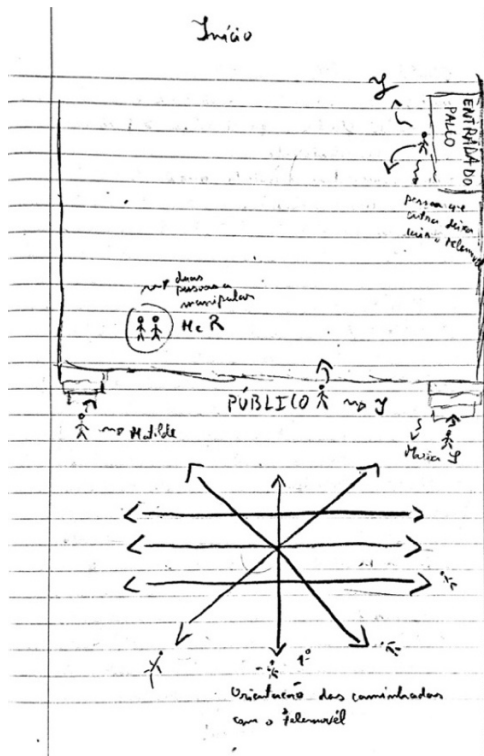 Início
Y
ENTRADA DO
PALCO
pessoa que
entra deixa
cair o telemóvel
duas
pessoas a
manipular
M e R
PÚBLICO Y
Matilde
Maria Y
1º
Orientação das caminhadas
com o Telemóvel